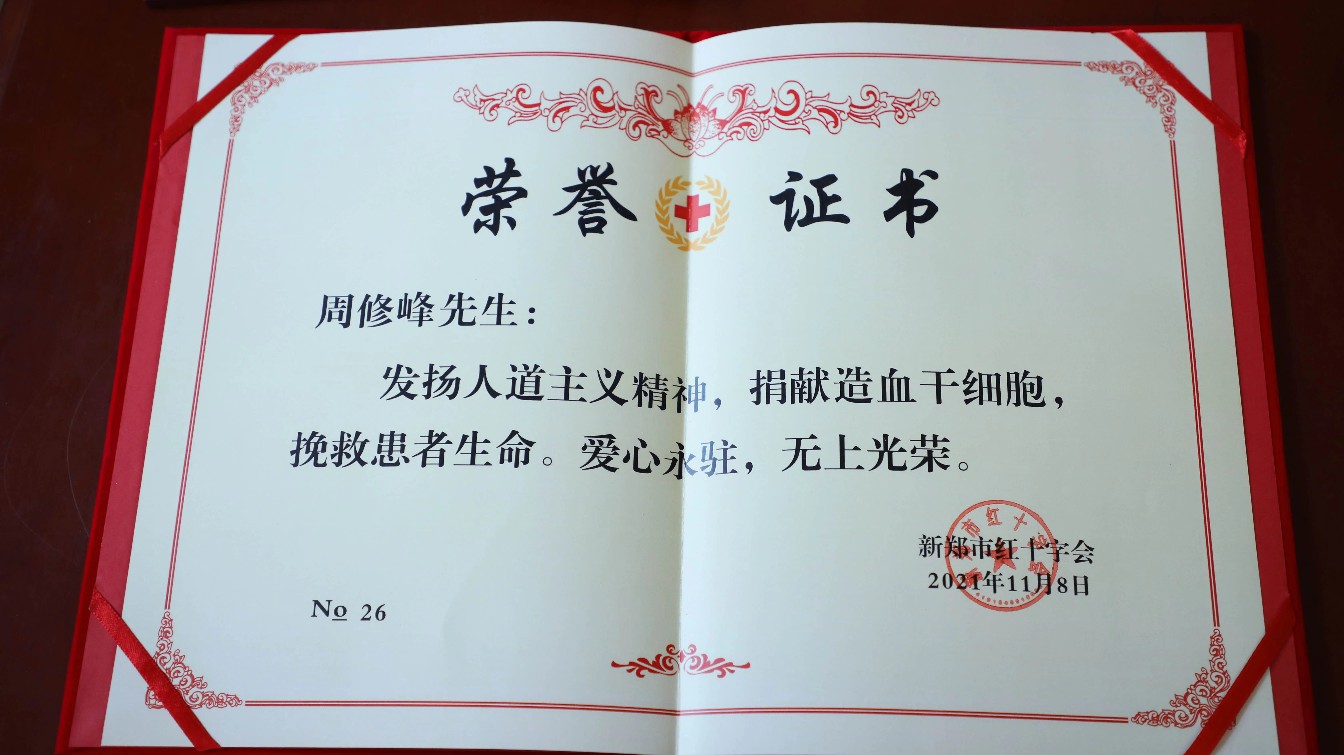 荣誉证书
周修峰先生：
发扬人道主义精神，捐献造血干细胞，
挽救患者生命。爱心永驻，无上光荣。
新郑市红十字会
2021年11月8日
No 26